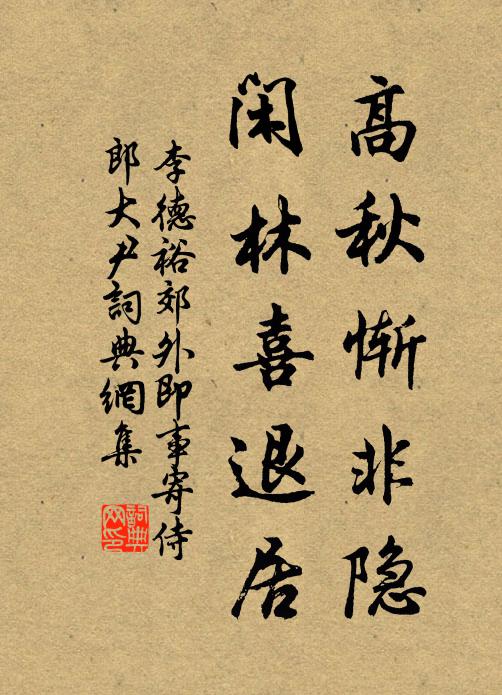 高秋惭非隐
闲林喜退居
李德裕郊外即事寄侍
郎大尹詞典網集
詞典
网印